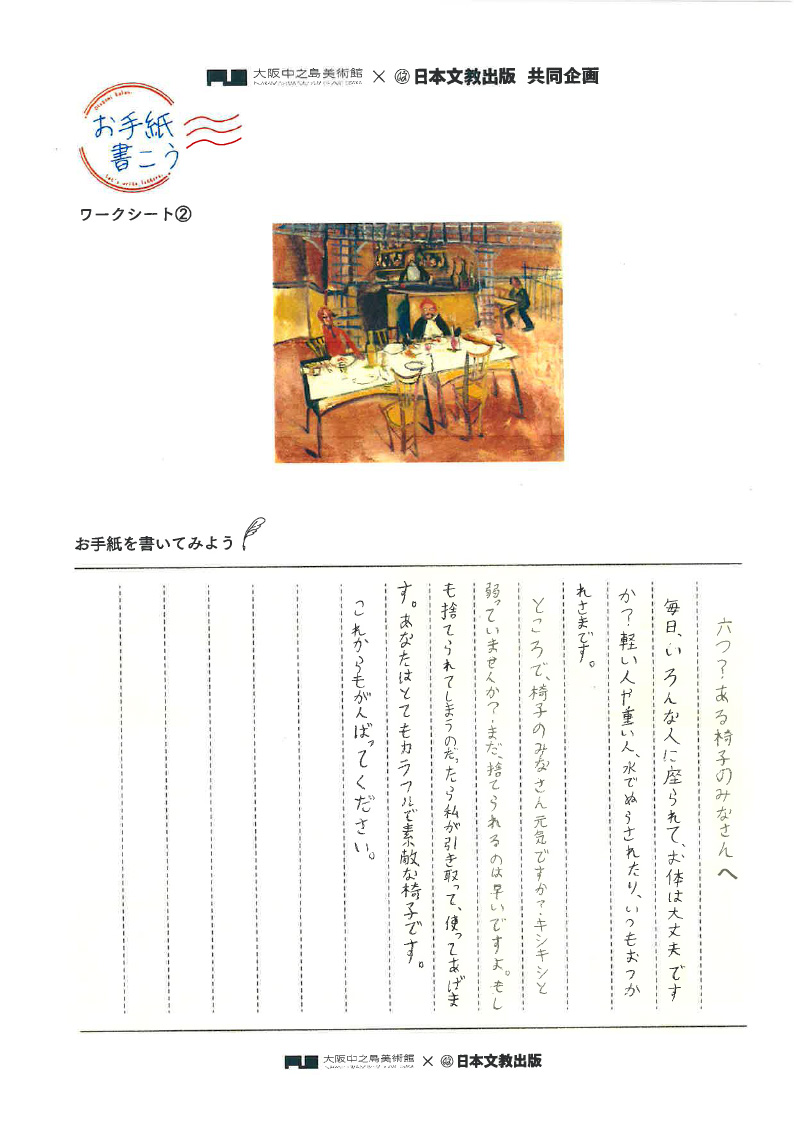 大阪中之島美術館 × 日本文教出版 共同企画
Otegami Kakou.
お手紙
書こう
Let's write letters.
ワークシート②
お手紙を書いてみよう
六つ？ある椅子のみなさんへ
毎日、いろんな人に座られて、お体は大丈夫です
か？軽い人や重い人、水でぬらされたり、いつもおつか
れさまです。
ところで、椅子のみなさん元気ですか？キシキシと
弱っていませんか？まだ、捨てられるのは早いですよ。もし
も捨てられてしまうのだったら私が引き取って、使ってあげま
す。あなたはとてもカラフルで素敵な椅子です。
これからもがんばってください。
大阪中之島美術館 × 日本文教出版